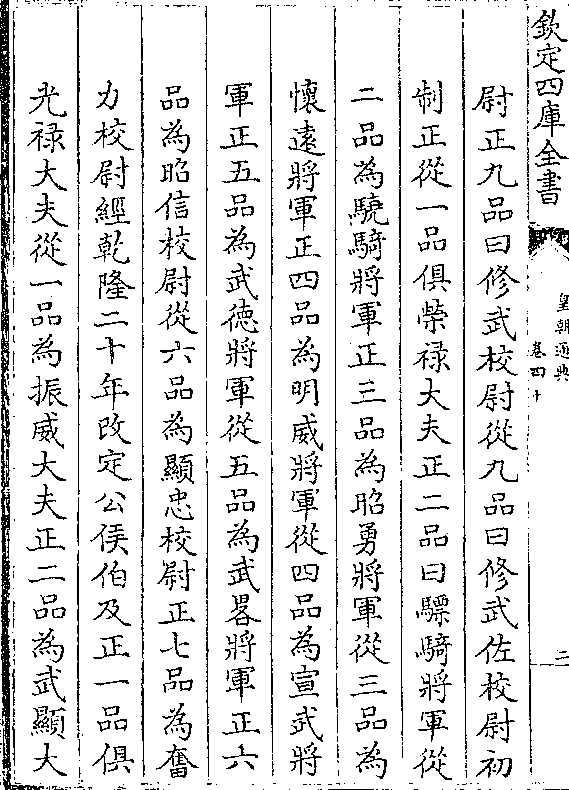 欽定四庫全書
皇朝通典
卷四十
二
尉正九品曰修武校尉從九品曰修武佐校尉初
制正從一品俱榮禄大夫正二品曰驃騎將軍從
二品為驍騎將軍正三品為昭勇將軍從三品為
懷遠將軍正四品為明威將軍從四品為宣武將
軍正五品為武德將軍從五品為武畧將軍正六
品為昭信校尉從六品為顯忠校尉正七品為奮
力校尉經乾隆二十年改定公侯伯及正一品俱
光禄大夫從一品為振威大夫正二品為武顯大